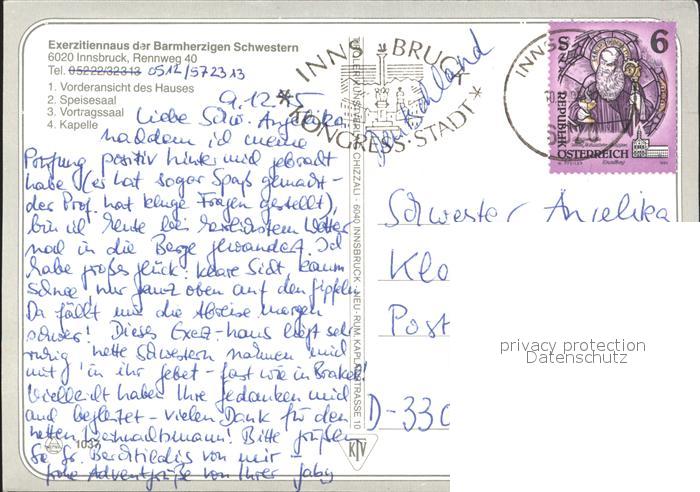 Exerzitienhaus der Barmherzigen Schwestern
6020 Innsbruck, Rennweg 40
Tel. 05222/32313 0512/572313
1. Vorderansicht des Hauses
2. Speisesaal
3. Vortragssaal
4. Kapelle
9.12.
Liebe Schw. Angelika,
nachdem ich meine
Prüfung positiv hinter mich gebracht
habe (es hat sogar Spaß gemacht -
der Prof. hat kluge Fragen gestellt),
bin ich heute bei herrlichstem Wetter
noch in die Berge gewandert. Ich
habe großes Glück: klare Sicht, kaum
Schnee nur ganz oben auf den Gipfeln
Da fällt mir die Abreise morgen
schwer! Dieses Exerz-haus liegt sehr
ruhig nette Schwestern nahmen mich
mit in ihr Gebet - fast wie in Brakel!
Vielleicht haben Ihre Gedanken mich
auch begleitet - vielen Dank für den
netten Weihnachtsmann! Bitte grüßen
Sie Sr. von mir -
frohe Adventgrüße von Ihrer Gaby
1037
TIROLER KUNSTVERLAG CHIZZALI · 6040 INNSBRUCK - NEU-RUM, KAPLANSTRASSE 10
KTV
INNSBRUCK
KONGRESS-STADT
Deutschland
INNS
6
S
REPUBLIK
ÖSTERREICH
Schwester Angelika
Klo
Post
D-330
privacy protection
Datenschutz